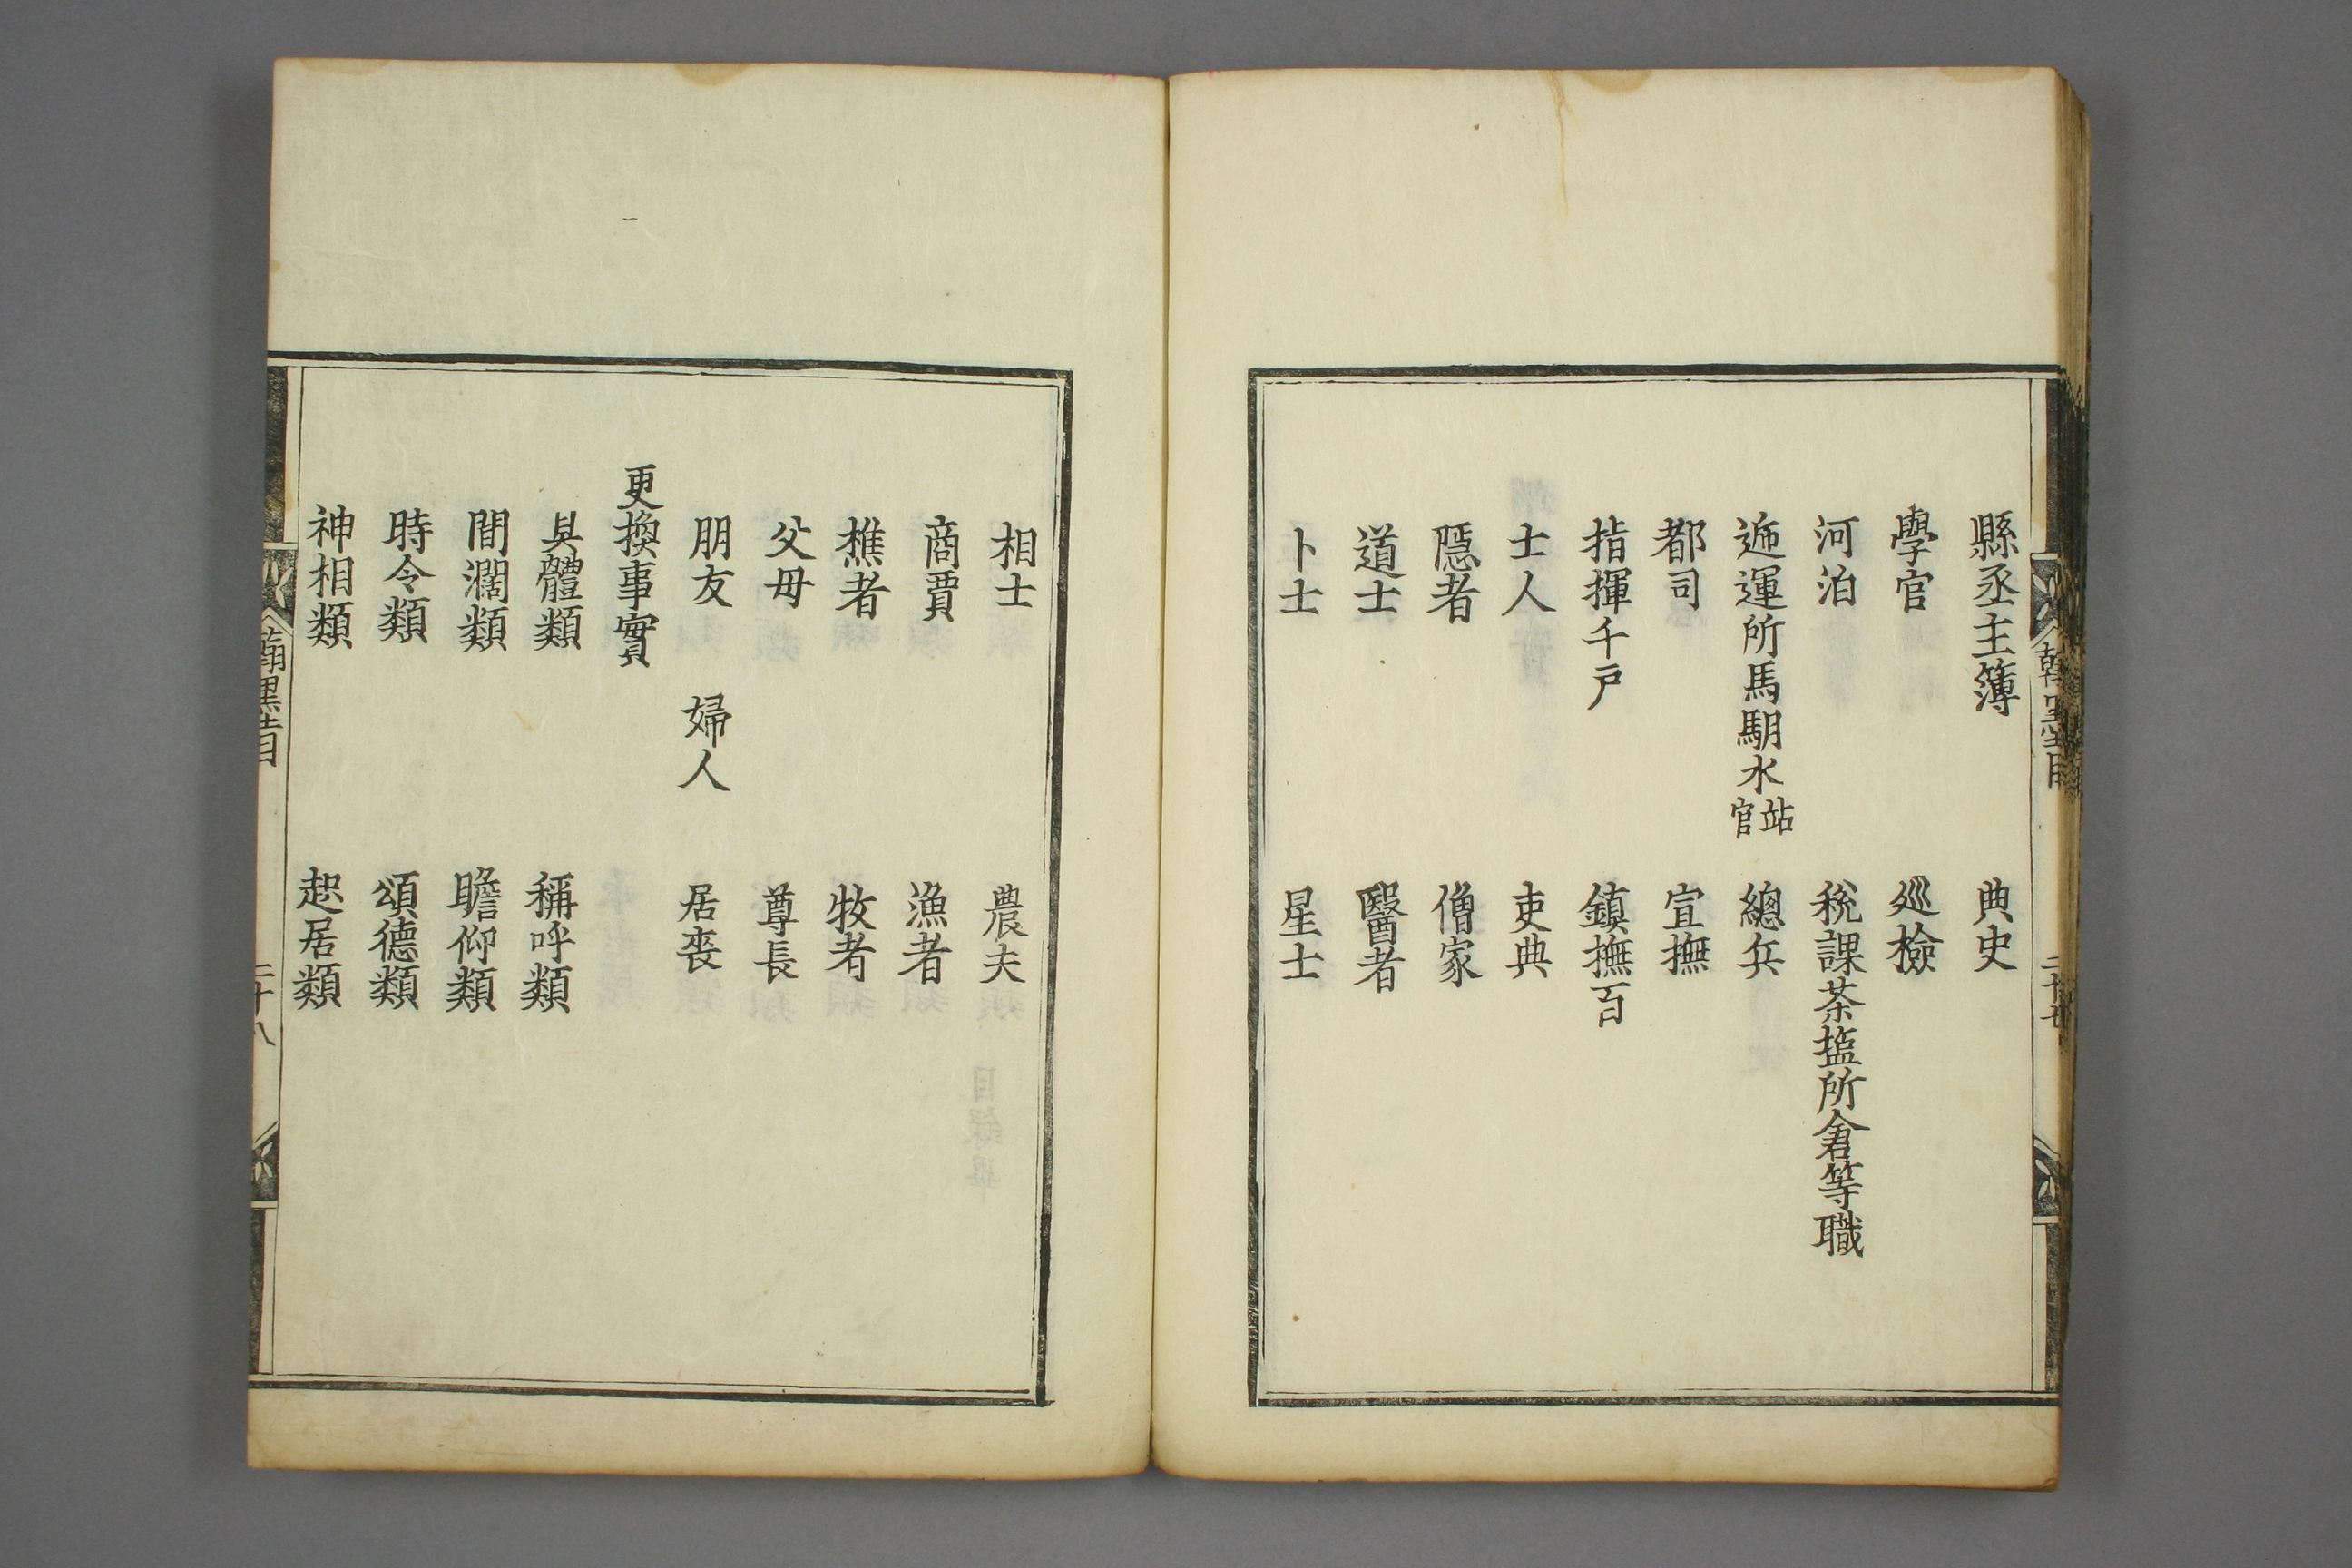 縣丞主簿　典史
學官　廵檢
河泊　稅課茶塩所倉等職
逓運所馬䮀水站官　總兵
都司　宣撫
指揮千戸　鎮撫百
士人　吏典
隱者　僧家
道士　醫者
卜士　星士
相士　農夫
商賈　漁者
樵者　牧者
父母　尊長
朋友　婦人　居丧
更換事實
具體類　稱呼類
間濶類　瞻仰類
時令類　頌德類
神相類　起居類
二十八